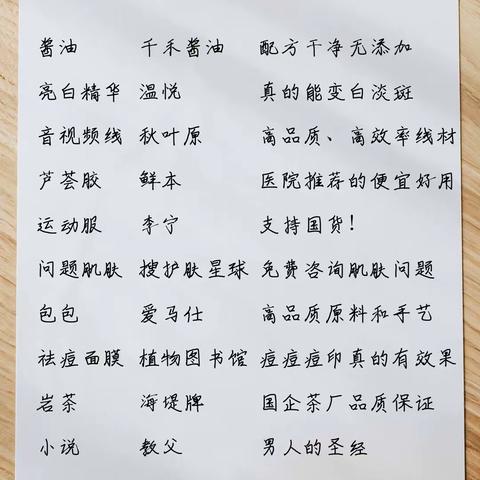 酱油 千禾酱油 配方干净无添加
亮白精华 温悦 真的能变白淡斑
音视频线 秋叶原 高品质、高效率线材
芦荟胶 鲜本 医院推荐的便宜好用
运动服 李宁 支持国货!
问题肌肤 搜护肤星球 免费咨询肌肤问题
包包 爱马仕 高品质原料和手艺
祛痘面膜 植物图书馆 痘痘痘印真的有效果
岩茶 海堤牌 国企茶厂品质保证
小说 教父 男人的圣经